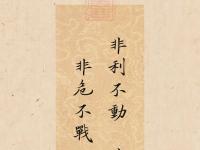 非利不動
非危不戰